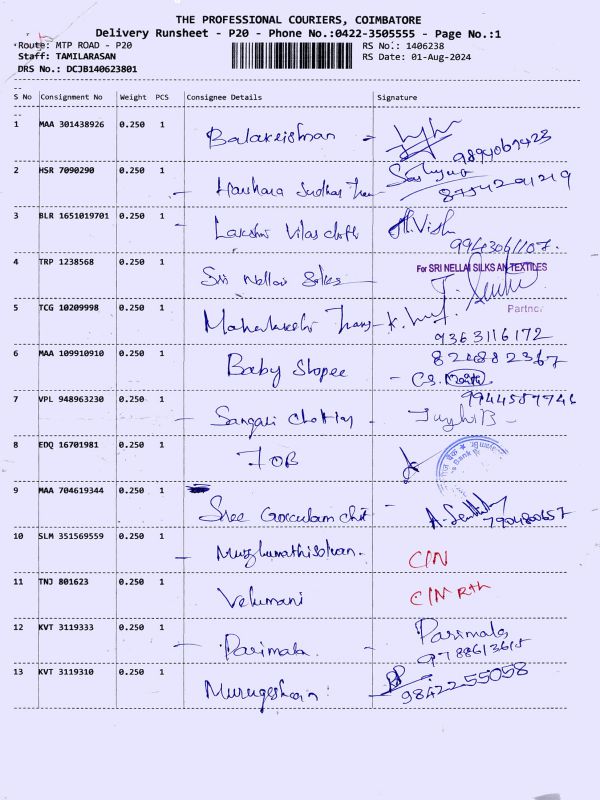 THE PROFESSIONAL COURIERS, COIMBATORE
Delivery Runsheet - P20 - Phone No.:0422-3505555 - Page No.:1
Route: MTP ROAD - P20 RS No.: 1406238
Staff: TAMILARASAN RS Date: 01-Aug-2024
DRS No.: DCJB140623801
S No Consignment No Weight PCS Consignee Details Signature
1 MAA 301438926 0.250 1 Balakrishnan
2 HSR 7090290 0.250 1 8754204219
3 BLR 1651019701 0.250 1 Lakshmi Vilas
9943061107.
4 TRP 1238568 0.250 1 Sri Nellai Silks For SRI NELLAI SILKS AN TEXTILES
Partner
5 TCG 10209998 0.250 1 Mahalakshmi Trans
9363116172
6 MAA 109910910 0.250 1 Baby Shopee 824882367
7 VPL 948963230 0.250 1 9944587746
8 EDQ 16701981 0.250 1 IOB
9 MAA 704619344 0.250 1 Sree Gokulam Chit
10 SLM 351569559 0.250 1 C/N
11 TNJ 801623 0.250 1 Velumani C/N Rth
12 KVT 3119333 0.250 1 Parimala Parimala
9788613615
13 KVT 3119310 0.250 1 Murugeshan 9842255058